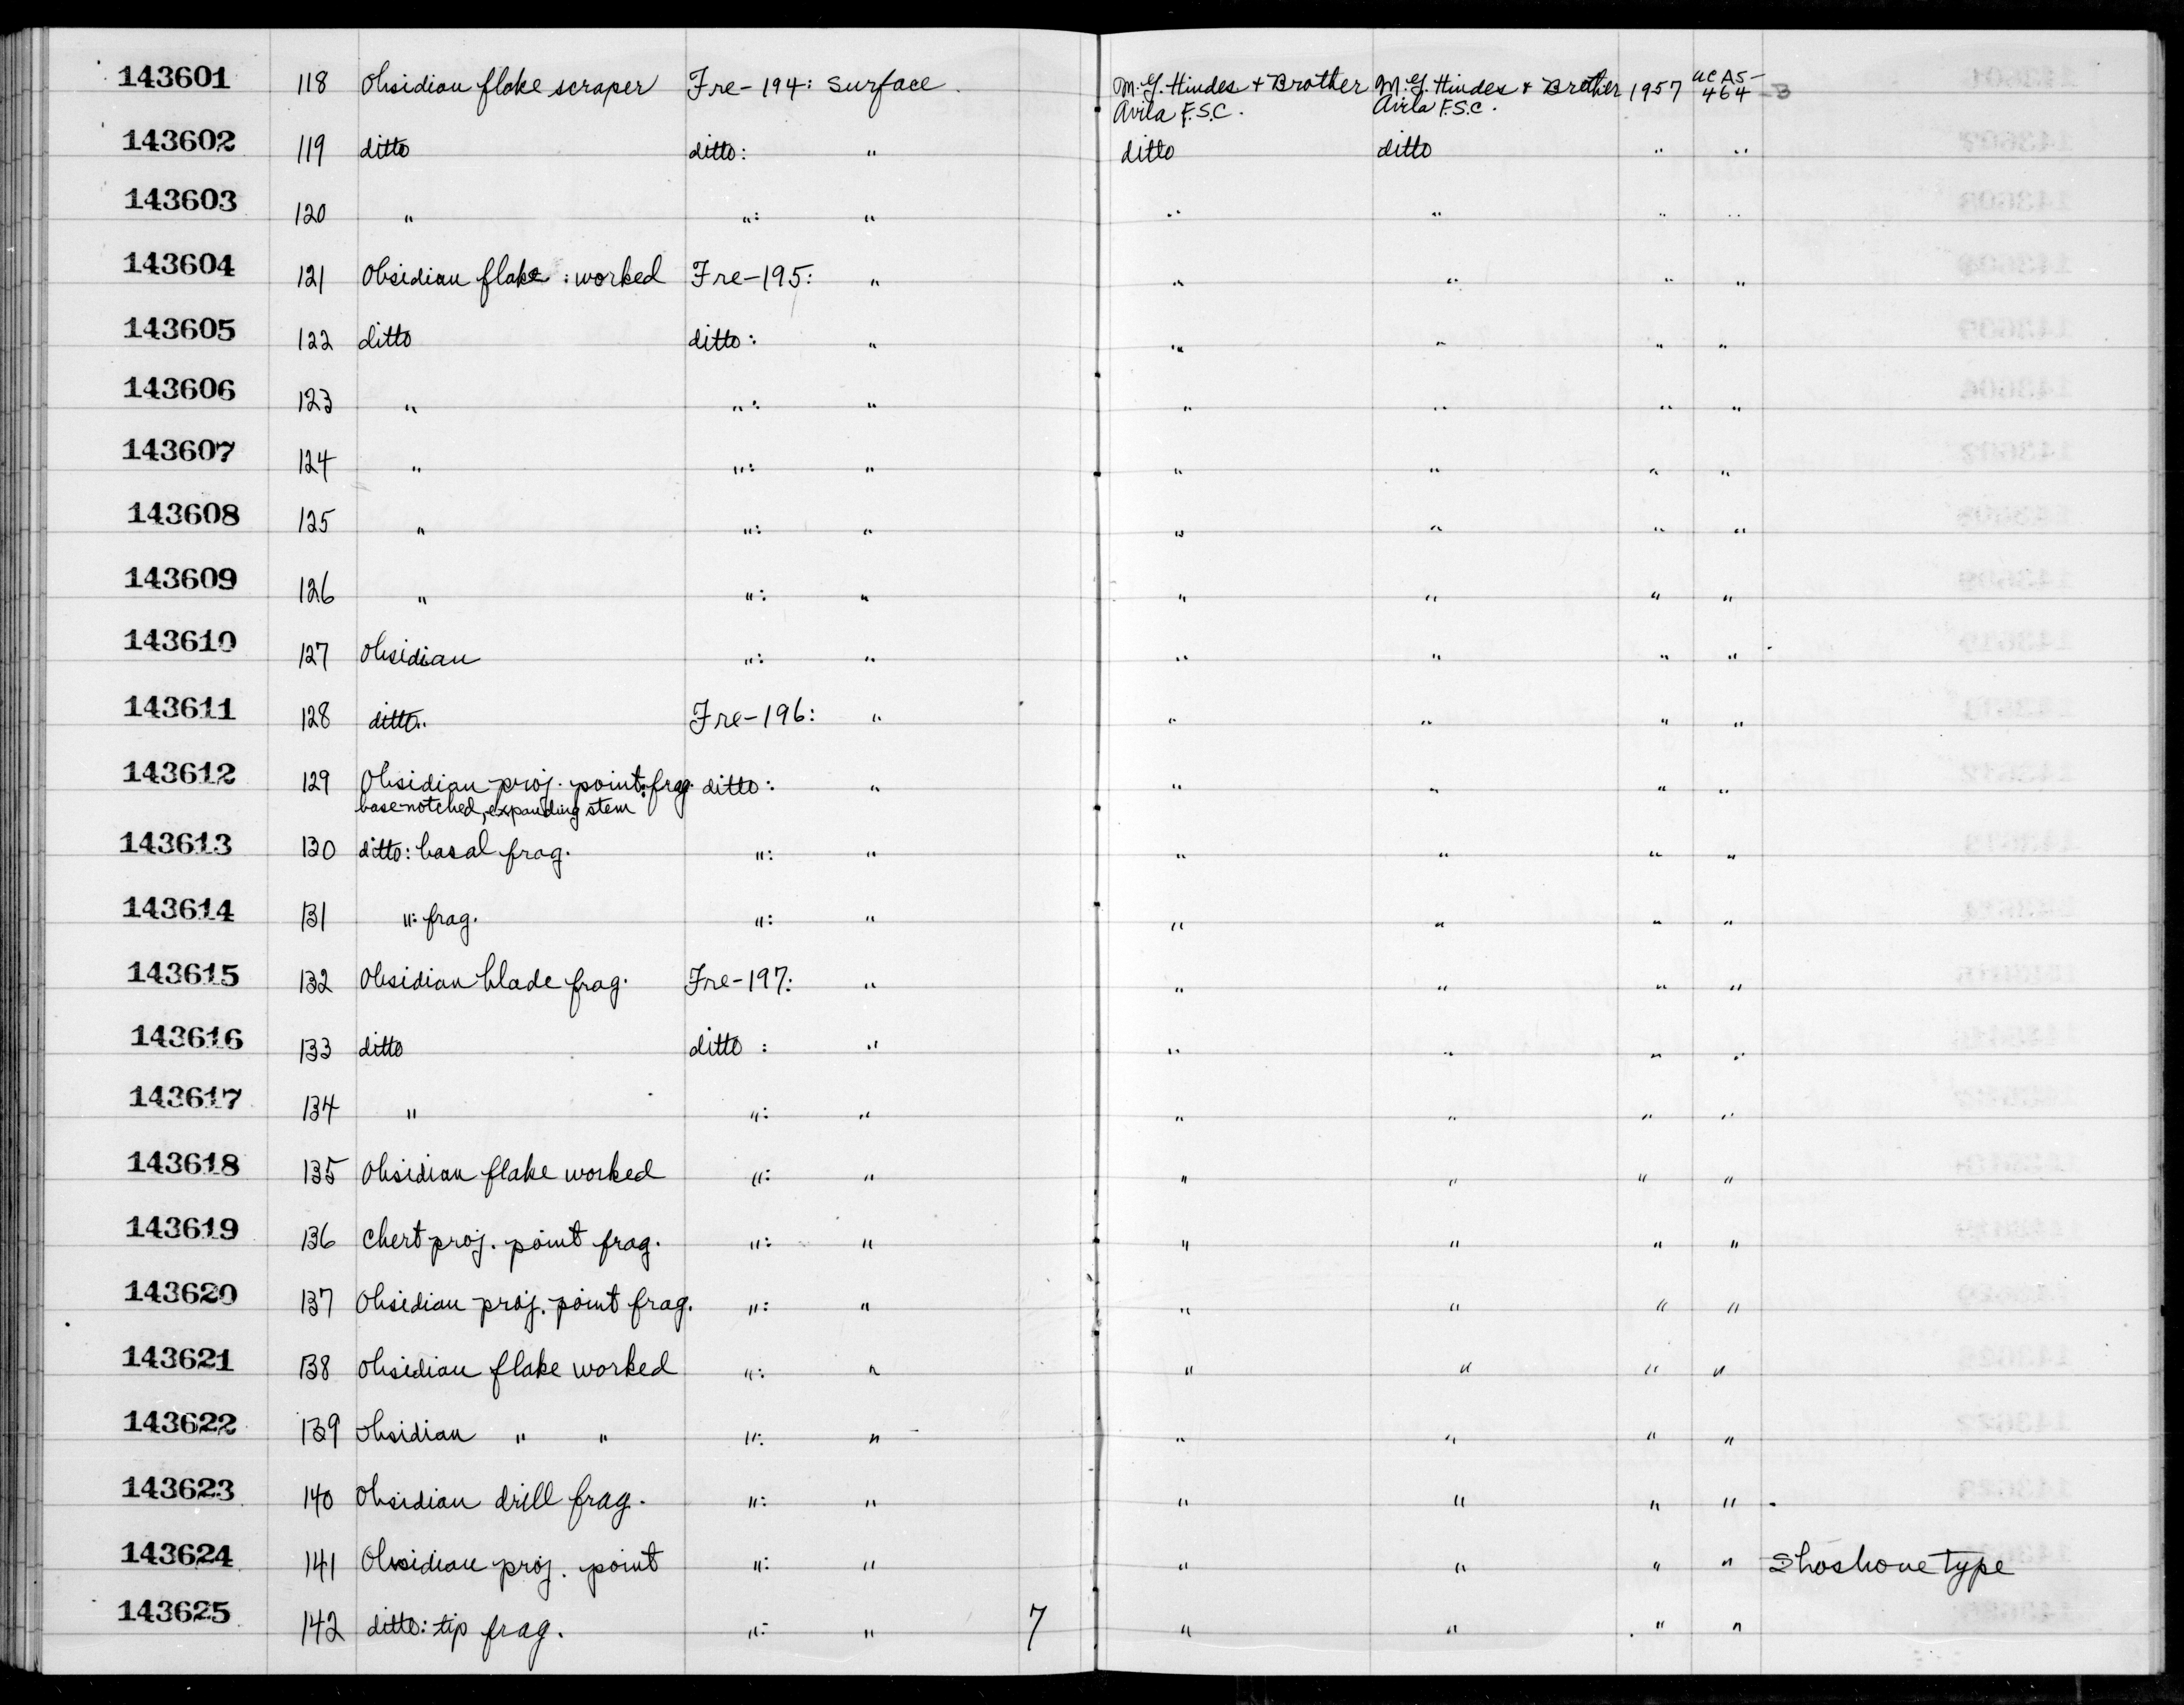 143601 118 Obsidian flake scraper Fre-194: Surface M.G. Hindes + Brother M.G. Hindes + Brother 1957 UCAS-
Avila F.S.C. Avila F.S.C. 464-B
143602 119 ditto ditto: " ditto ditto " "
143603 120 " ": " " " " "
143604 121 Obsidian flake: worked Fre-195: " " " " "
143605 122 ditto ditto: " " " " "
143606 123 " ": " " " " "
143607 124 " ": " " " " "
143608 125 " ": " " " " "
143609 126 " ": " " " " "
143610 127 Obsidian ": " " " " "
143611 128 ditto Fre-196: " " " " "
143612 129 Obsidian proj. point: frag. ditto: " " " " "
base-notched, expanding stem
143613 130 ditto: basal frag. ": " " " " "
143614 131 ": frag. ": " " " " "
143615 132 Obsidian blade frag. Fre-197: " " " " "
143616 133 ditto ditto : " " " " "
143617 134 " ": " " " " "
143618 135 Obsidian flake worked ": " " " " "
143619 136 Chert proj. point frag. ": " " " " "
143620 137 Obsidian proj. point frag. ": " " " " "
143621 138 Obsidian flake worked ": " " " " "
143622 139 Obsidian " " ": " " " " "
143623 140 Obsidian drill frag. ": " " " " "
143624 141 Obsidian proj. point ": " " " " " Shoshone type
143625 142 ditto: tip frag. ": " 7 " " " "